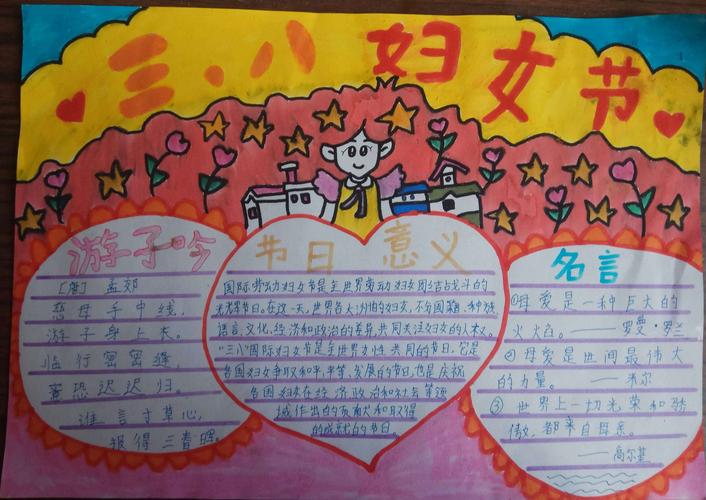 三、八妇女节
游子吟
[唐] 孟郊
慈母手中线，
游子身上衣。
临行密密缝，
意恐迟迟归。
谁言寸草心，
报得三春晖。
节日意义
国际劳动妇女节是全世界劳动妇女团结战斗的
光辉节日。在这一天，世界各大洲的妇女，不分国籍、种族、
语言、文化、经济和政治的差异，共同关注妇女的人权。
“三八”国际妇女节是全世界女性共同的节日。它是
各国妇女争取和平、平等、发展的节日，也是庆祝
各国妇女在经济政治和社会等领
域作出的贡献大和取得
的成就的节日。
名言
①母爱是一种巨大的
火焰。——罗曼·罗兰
②母爱是世间最伟大
的力量。——米尔
③世界上一切光荣和骄
傲，都来自母亲。
——高尔基